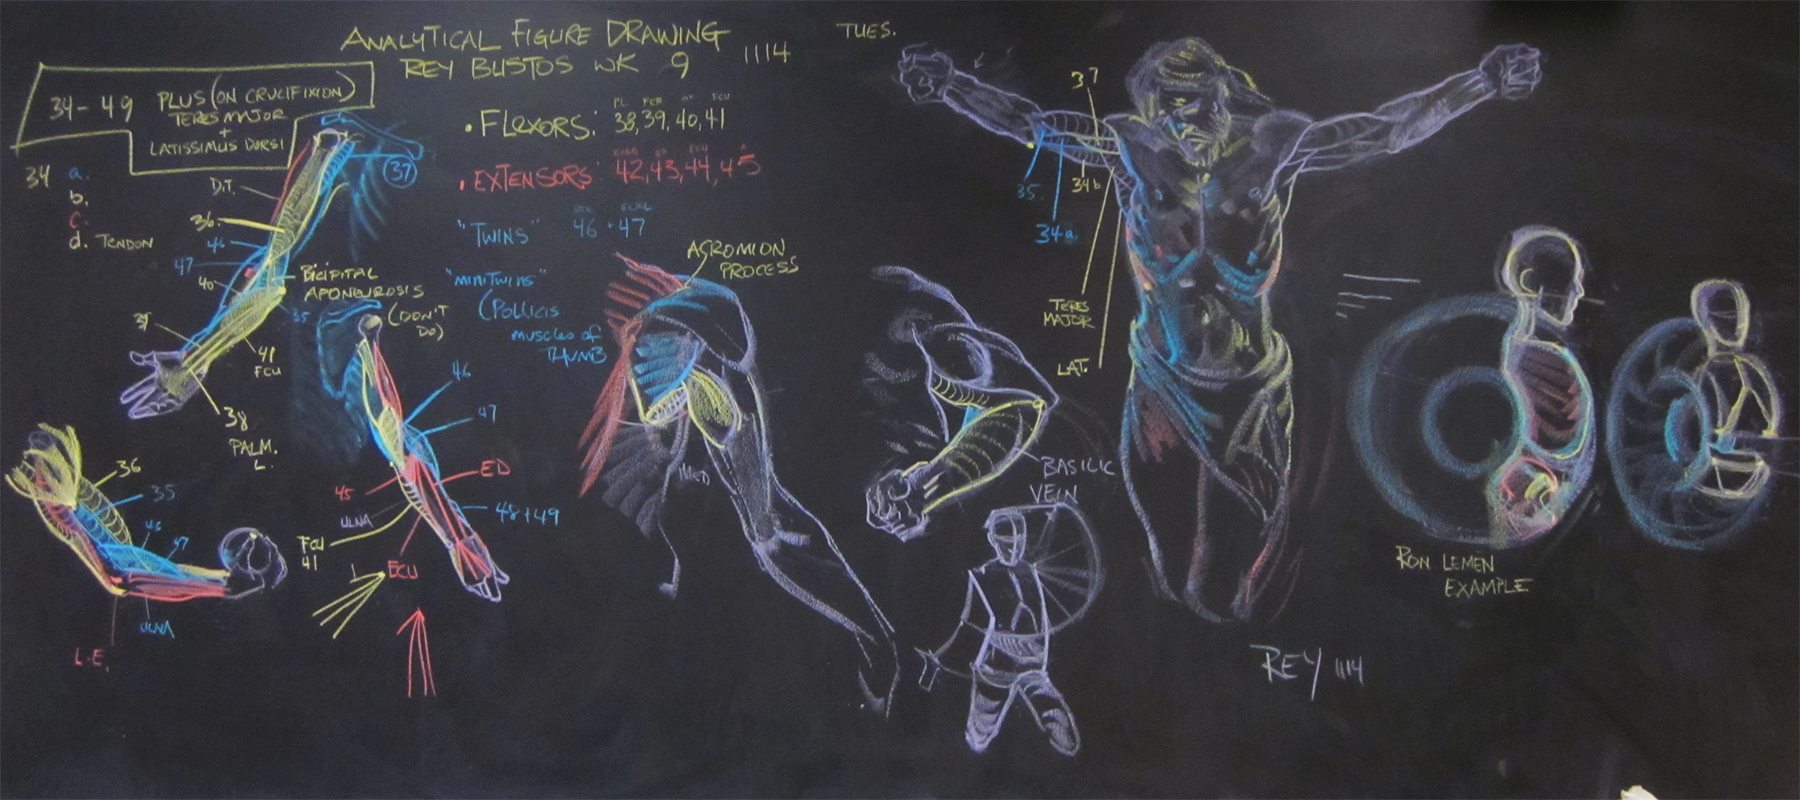 ANALYTICAL FIGURE DRAWING
REY BUSTOS WK 9 1114
TUES.
34-49 PLUS (ON CRUCIFIXION)
TERES MAJOR
+
LATISSIMUS DORSI
34 a.
b.
c.
d. TENDON
D.T.
36
46
47
40
37
BICIPITAL
APONEUROSIS
(DON'T
DO)
39
41
FCU
38
PALM.
L.
• FLEXORS: 38, 39, 40, 41
PL FCR PT FCU
• EXTENSORS: 42, 43, 44, 45
ECRB ED ECU A
"TWINS" 46 + 47
ECRL
"MINI TWINS"
(POLLICIS
MUSCLES OF
THUMB
36
35
46
47
ULNA
L.E.
35
46
47
ED
45
ULNA
48+49
FCU
41
ECU
ACROMION
PROCESS
MED
BASILIC
VEIN
37
35
34a.
34b.
TERES
MAJOR
LAT.
RON LEMEN
EXAMPLE
REY 1114